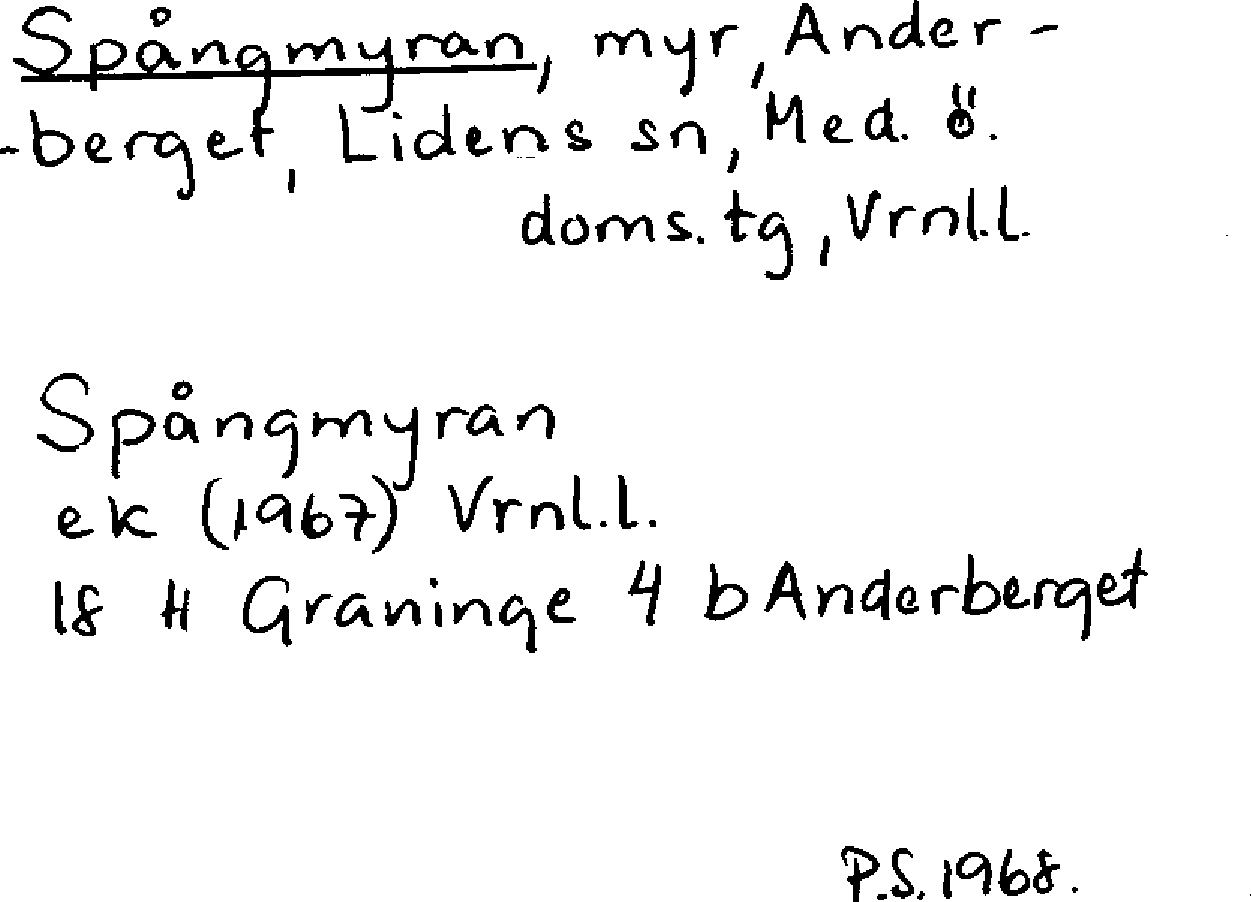 Spångmyran, myr, Ander-
-berget, Lidens sn, Med. ö.
doms. tg, Vrnl.l.
Spångmyran
ek (1967) Vrnl.l.
18 H Graninge 4 b Anderberget
P.S. 1968.